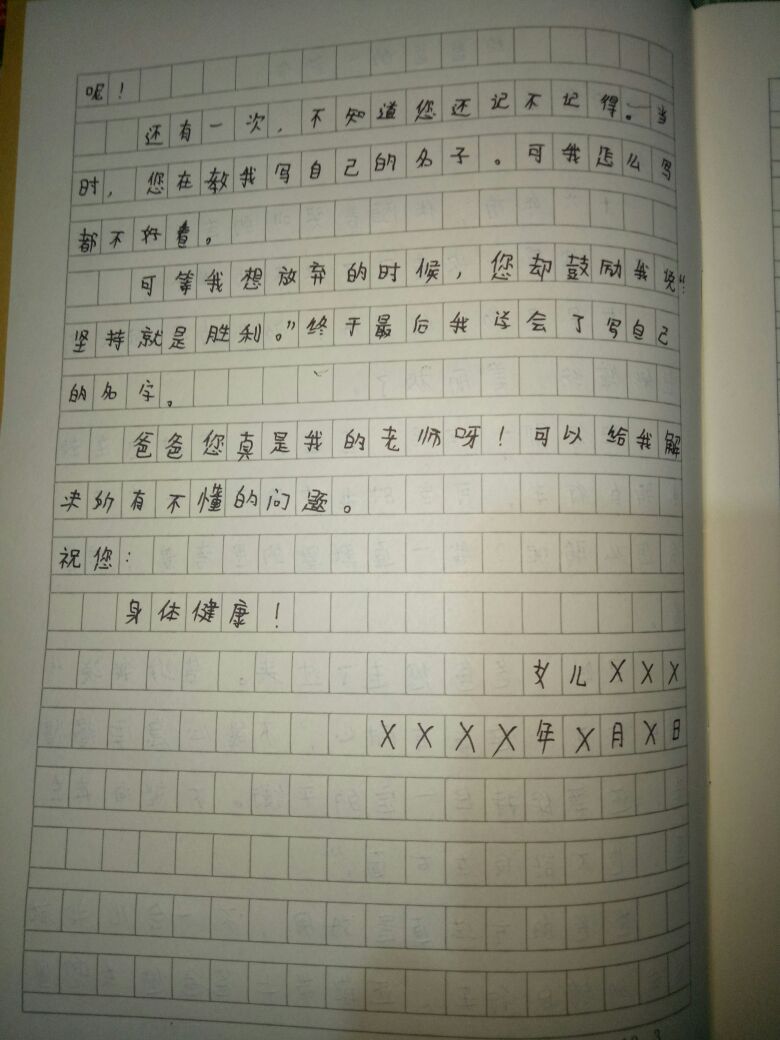 呢！
还有一次，不知道您还记不记得。当
时，您在教我写自己的名子。可我怎么写
都不好看。
可等我想放弃的时候，您却鼓励我说“
坚持就是胜利。”终于最后我学会了写自己
的名字。
爸爸您真是我的老师呀！可以给我解
决所有不懂的问题。
祝您：
身体健康！
女儿XXX
XXXX年X月X日